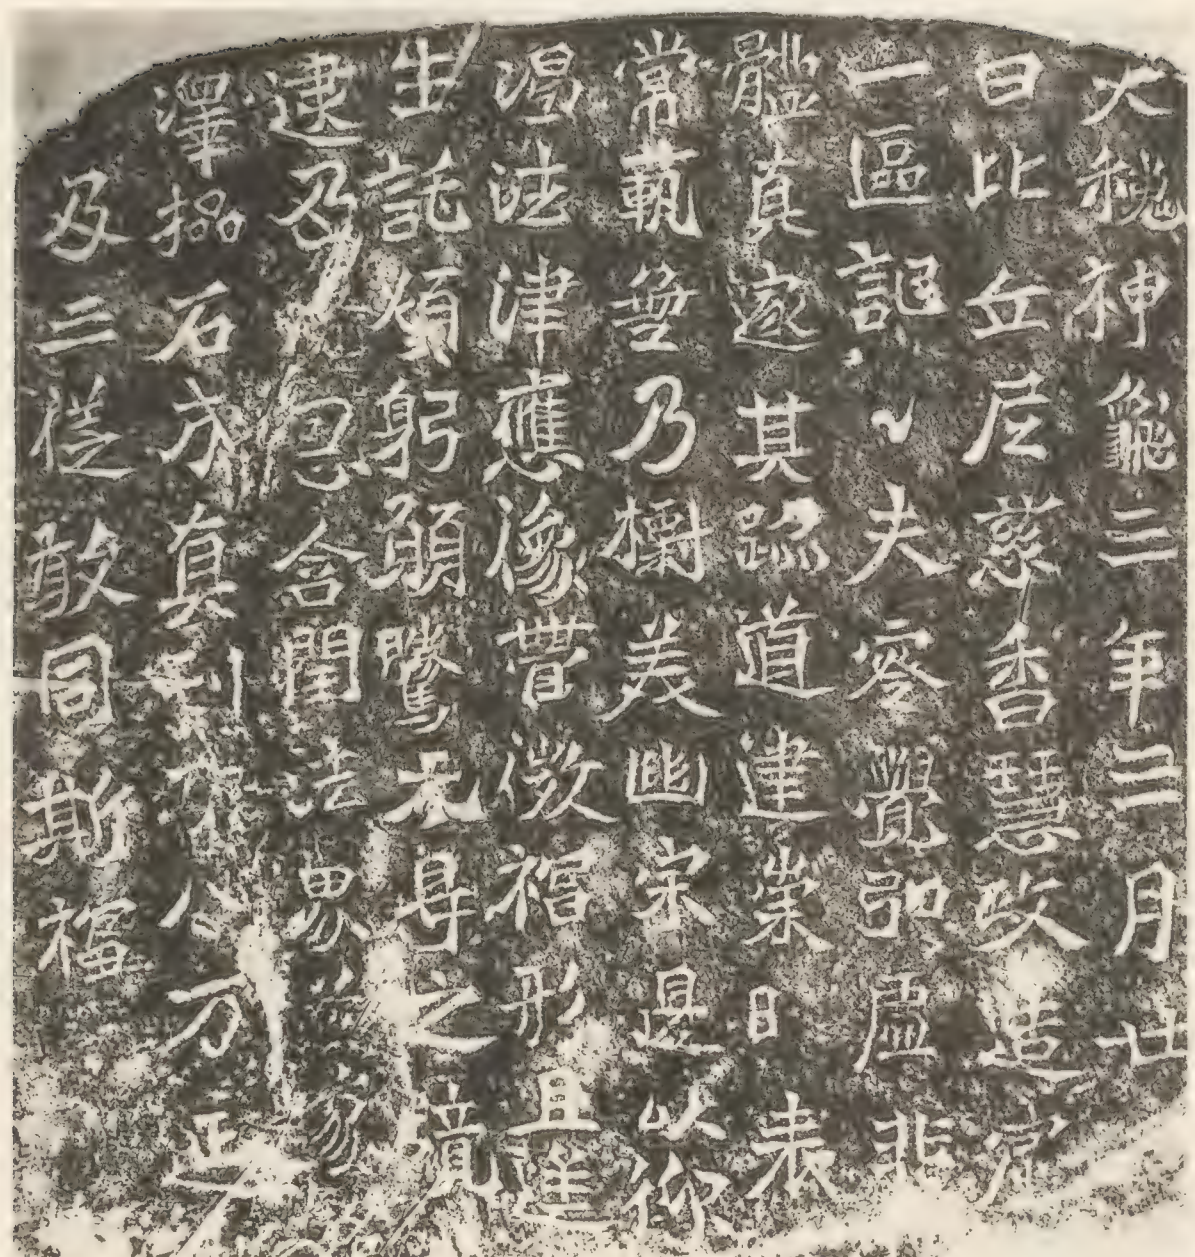 大魏神龜三年三月廿
日比丘尼慈香慧政造窟
一區記〻夫零覺弘虛非
體真邃其跡道建崇日表
常範無乃標美幽宗是以仰
渴法津應像營微福形且遙
生託煩躬願騰无㝵之境
逮及恩含閏法界蒙
澤石成真刊八万延
及三從敢同斯福